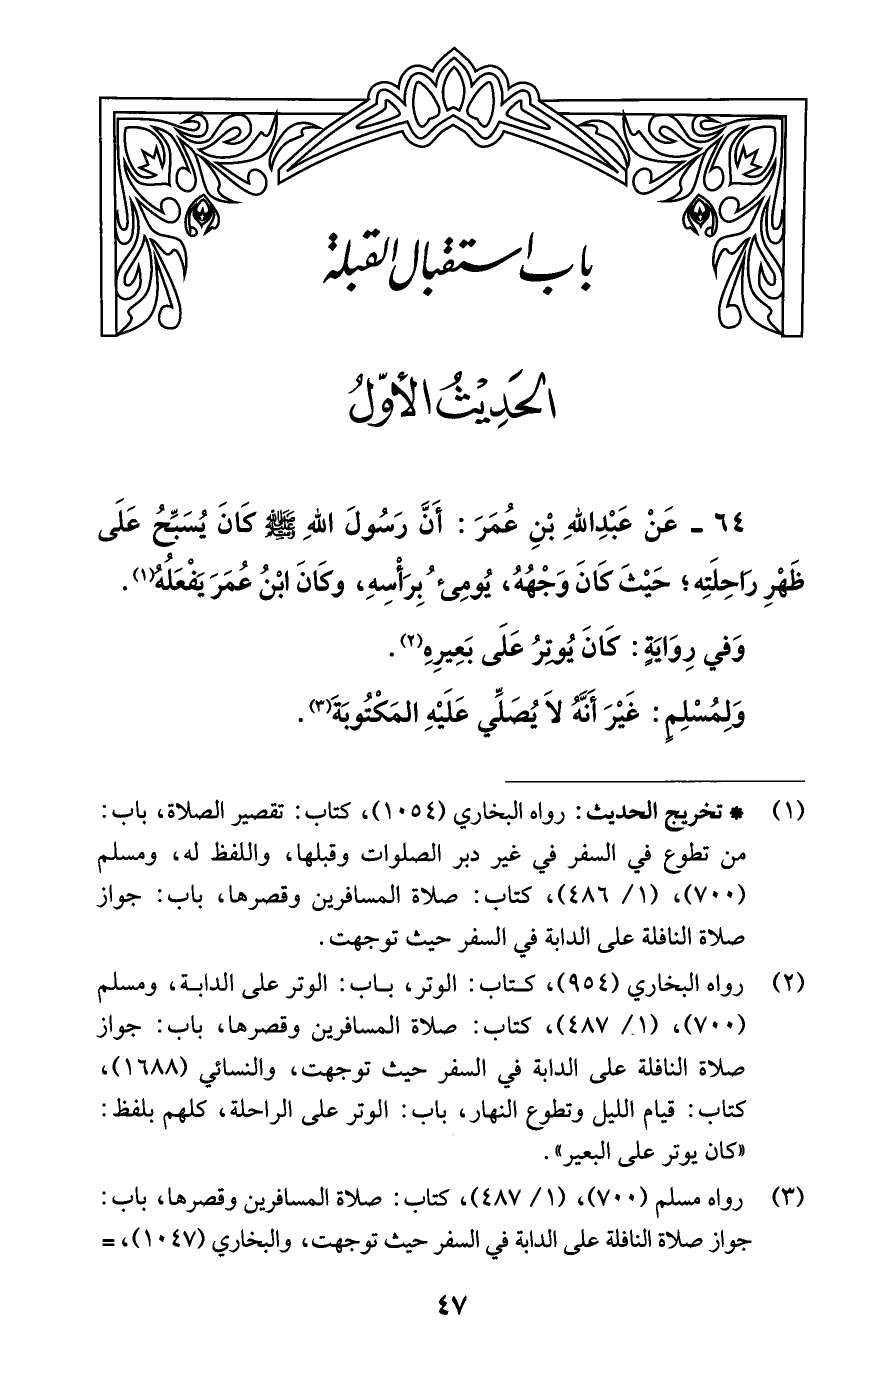 باب استقبال القبلة
الحَدِيْثُ الأوَّلُ
٦٤ ـ عَنْ عَبْدِاللهِ بْنِ عُمَرَ : أَنَّ رَسُولَ اللهِ ﷺ كَانَ يُسَبِّحُ عَلَى
ظَهْرِ رَاحِلَتِه ؛ حَيْثَ كَانَ وَجْهُهُ، يُومِئُ بِرَأْسِهِ، وكَانَ ابْنُ عُمَرَ يَفْعَلُهُ(١) .
وَفي رِوَايَةٍ : كَانَ يُوتِرُ عَلَى بَعِيرِهِ(٢) .
وَلِمُسْلِمٍ : غَيْرَ أَنَّهُ لاَ يُصَلِّي عَلَيْهِ المَكْتُوبَةَ(٣) .
(١) * تخريج الحديث : رواه البخاري (١٠٥٤)، كتاب: تقصير الصلاة، باب:
من تطوع في السفر في غير دبر الصلوات وقبلها، واللفظ له، ومسلم
(٧٠٠)، (١/ ٤٨٦)، كتاب: صلاة المسافرين وقصرها، باب: جواز
صلاة النافلة على الدابة في السفر حيث توجهت .
(٢) رواه البخاري (٩٥٤)، كتاب: الوتر، باب: الوتر على الدابة، ومسلم
(٧٠٠)، (١/ ٤٨٧)، كتاب: صلاة المسافرين وقصرها، باب: جواز
صلاة النافلة على الدابة في السفر حيث توجهت، والنسائي (١٦٨٨)،
كتاب: قيام الليل وتطوع النهار، باب: الوتر على الراحلة، كلهم بلفظ:
«كان يوتر على البعير» .
(٣) رواه مسلم (٧٠٠)، (١/ ٤٨٧)، كتاب: صلاة المسافرين وقصرها، باب:
جواز صلاة النافلة على الدابة في السفر حيث توجهت، والبخاري (١٠٤٧)، =
٤٧